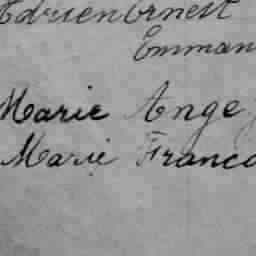 Adrien Ernest
Emman
Marie Ange
Marie Franco